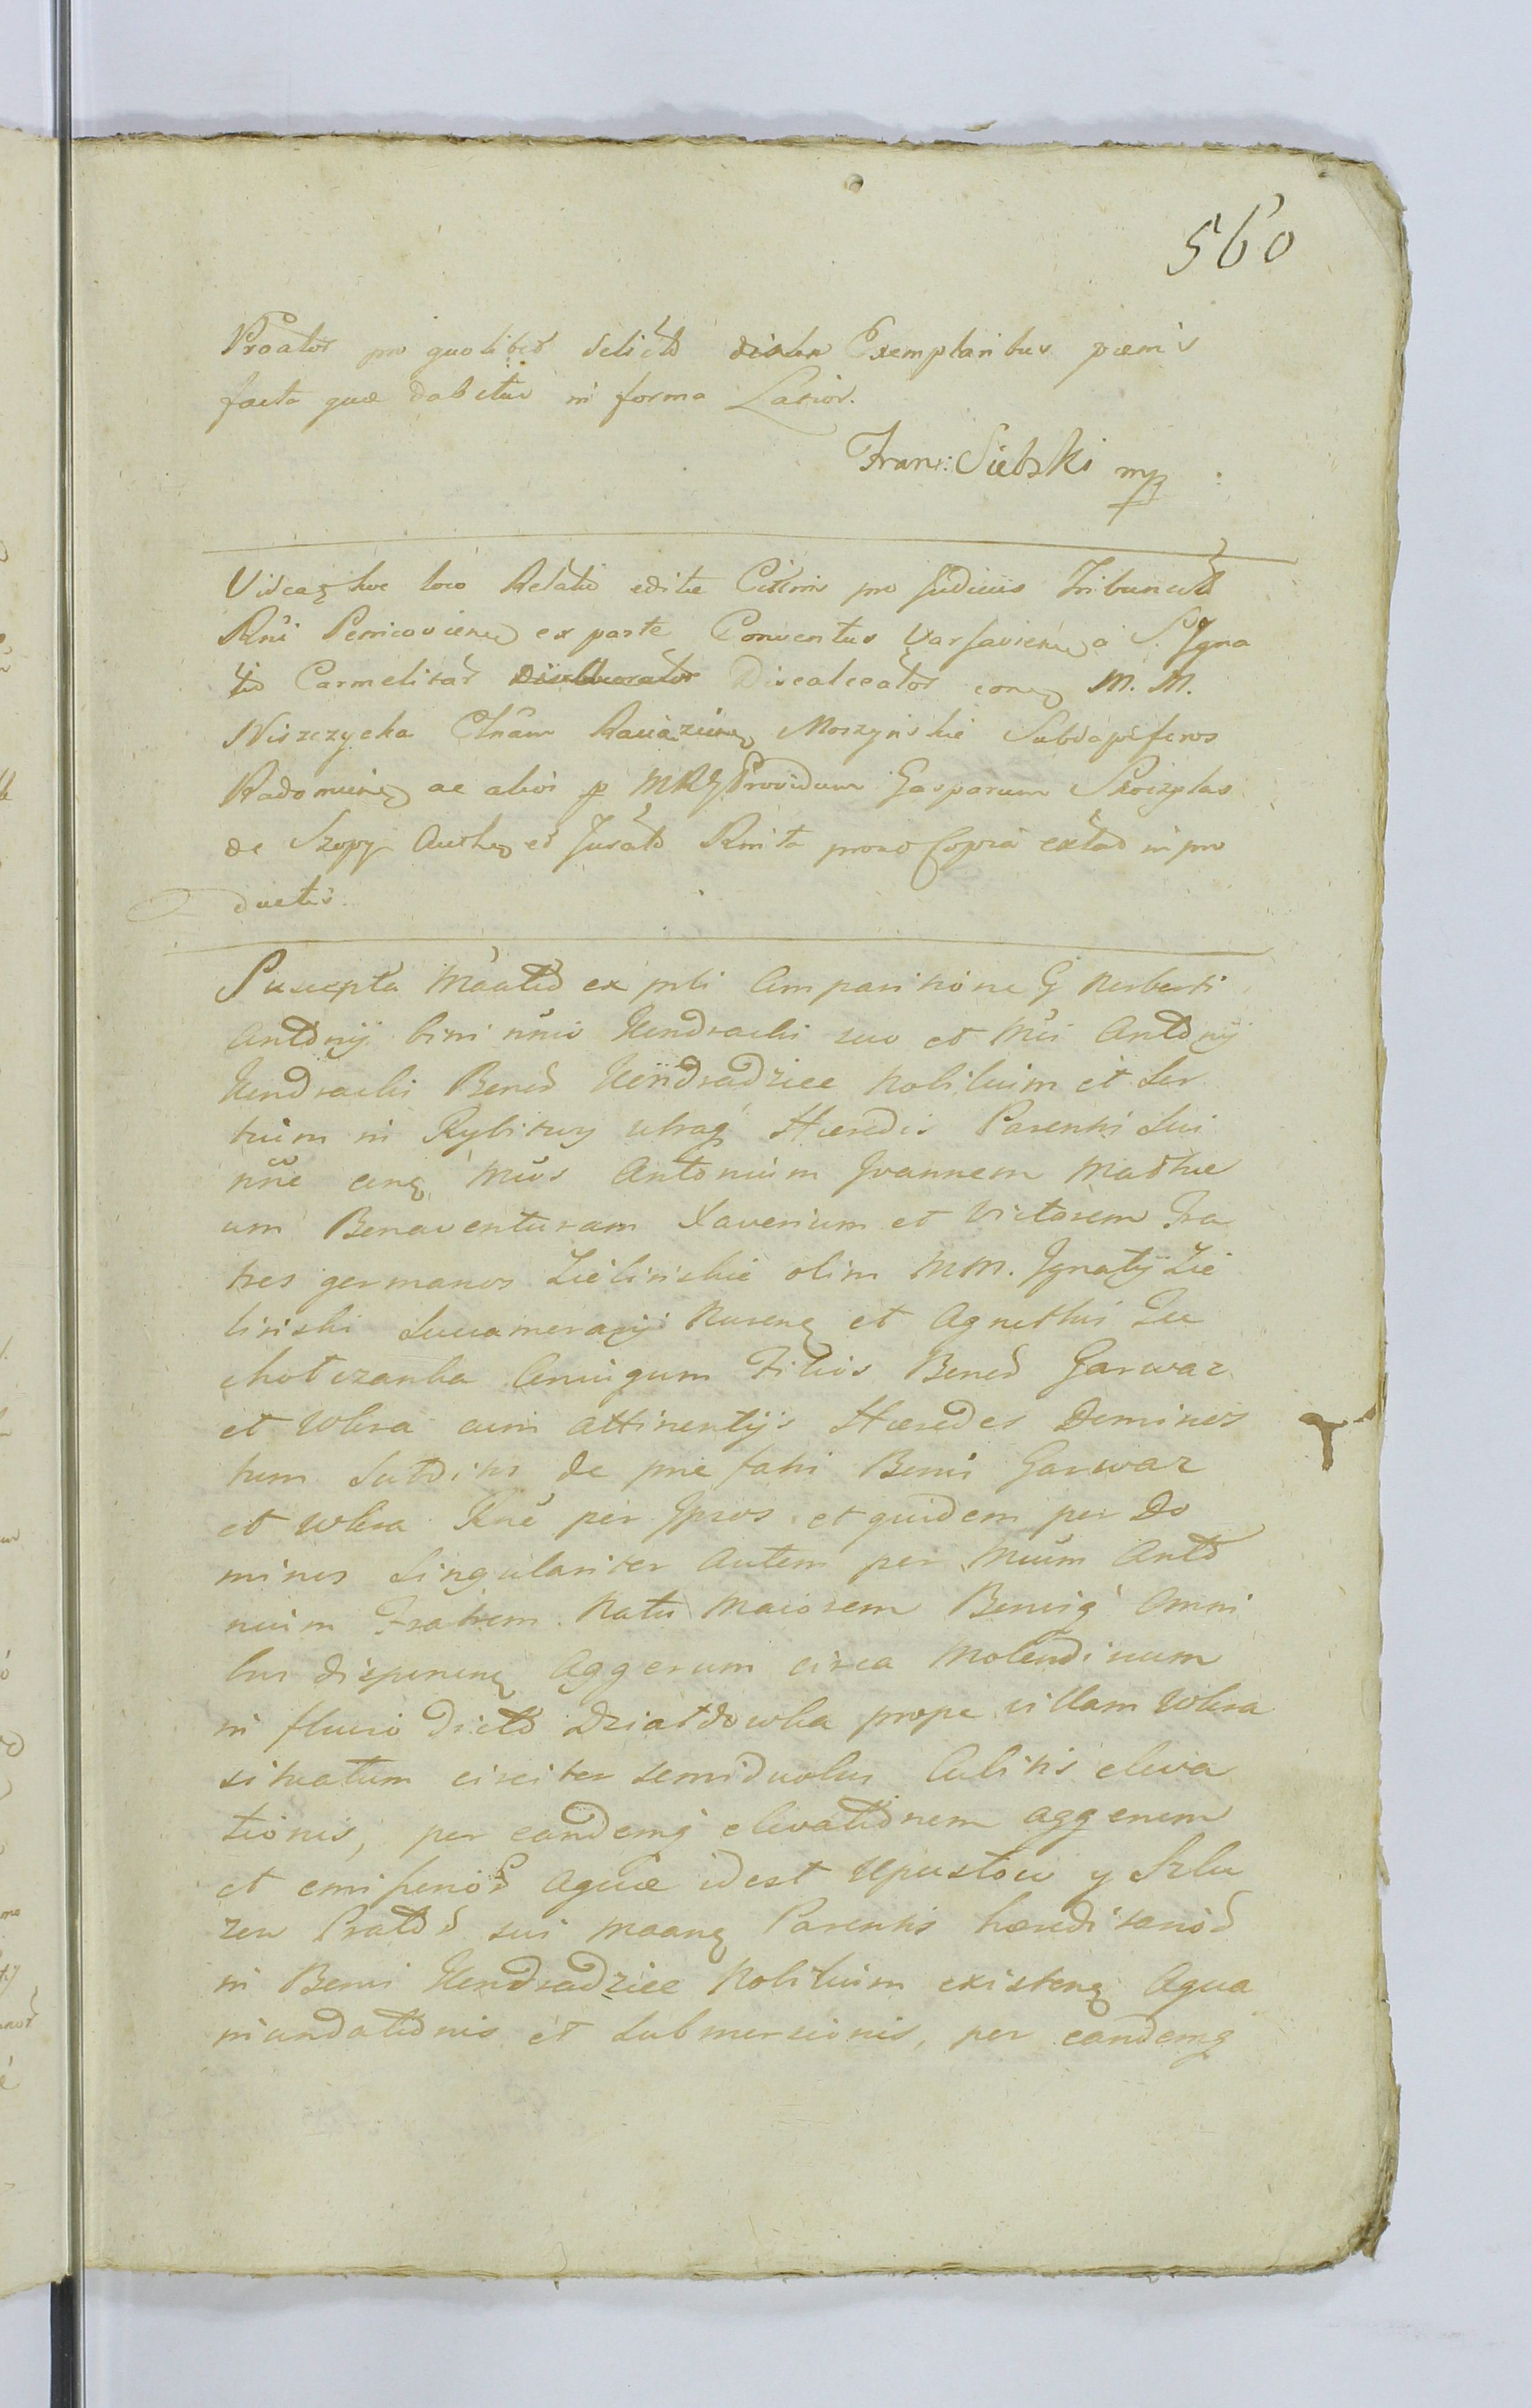 560
Proator pro quolibet delicto Exemplaribus pœnis
facta quæ dabitur in forma Latior.
Fran: Siebski mp
Videaq hoc loco Relatio editæ Citenis pro Judiciis Tribunalit
Rni Petricoviens ex parte Conventus Varsaviens a S. Igna
tio Carmelitar Discalceator conq M. M.
Niszczycka Ctnam Raciazins Moszynskie Subdapiferos
Radomiens ac alios p MRG Providum Gasparum
de Szopy et Jurato Rnita prout Copia extad in pro
ductis.
Suscepta Maatio ex psti Comparitione G Norberti
Antony bini nnis Kendracki suo et Mci Antony
Kendracki Benor Kendradzice Nobilium et Ser
tuim in Rybitwy utraq Hæredis Parentis Sui
nne cnq Mcos Antonium Joannem Mathæ
um Benaventuram Xaverium et Victorem Fra
tres germanos Zielinskie olim MM. Ignatij Zie
linski Succamerarij Nurens et Agnethis Su
chotczanka Coniugum Filios Benor Garwaz
et Wkra cum attinentijs Hæredes Dominos
tum Subditos de præfatis Bonis Garwaz
et Wkra Rne per Ipsos et quidem per Do
minos Singulariter Autem per Mcum Anto
nium Fratrem Natu Maiorem Bonisq Omni
bus disponens Aggerum circa Molendinum
in fluvio dicto Działdowka prope villam Wkra
situatum circiter semiduobus Cubitis eleva
tionis, per eandemq elevationem aggerem
et emissenor Aquæ idest Upustow y Szlu
zen Prator sui Maanq Parentis hæreditarior
in Bonis Kendradzice Nobilium existens Aqua
inundationis et Submersionis, per eandemq